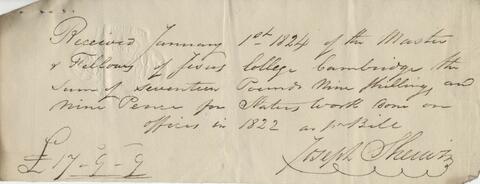 Received January 1st 1824 of the Master
& Fellows of Jesus College Cambridge the
Sum of Seventeen Pounds Nine Shillings and
Nine Pence for Slaters Work done on
offices in 1822 as pr Bill
£17-9-9 Joseph Sherwin